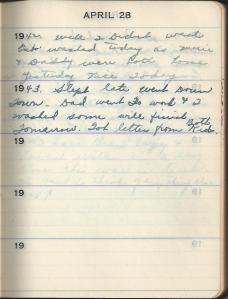 APRIL 28
1942 well I didn't want
but washed today as Marie
& Daddy were both home
yesterday Nice Today
1943. Slept late went down
town. Dad went to work & I
washed some will finish
tomorrow. Got letter from both Kids.
19
19